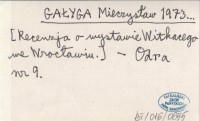 GAŁYGA Mieczysław 1973...
[Recenzja o wystawie Witkacego
we Wrocławiu.] – Odra
nr 9.
bj/016/0055